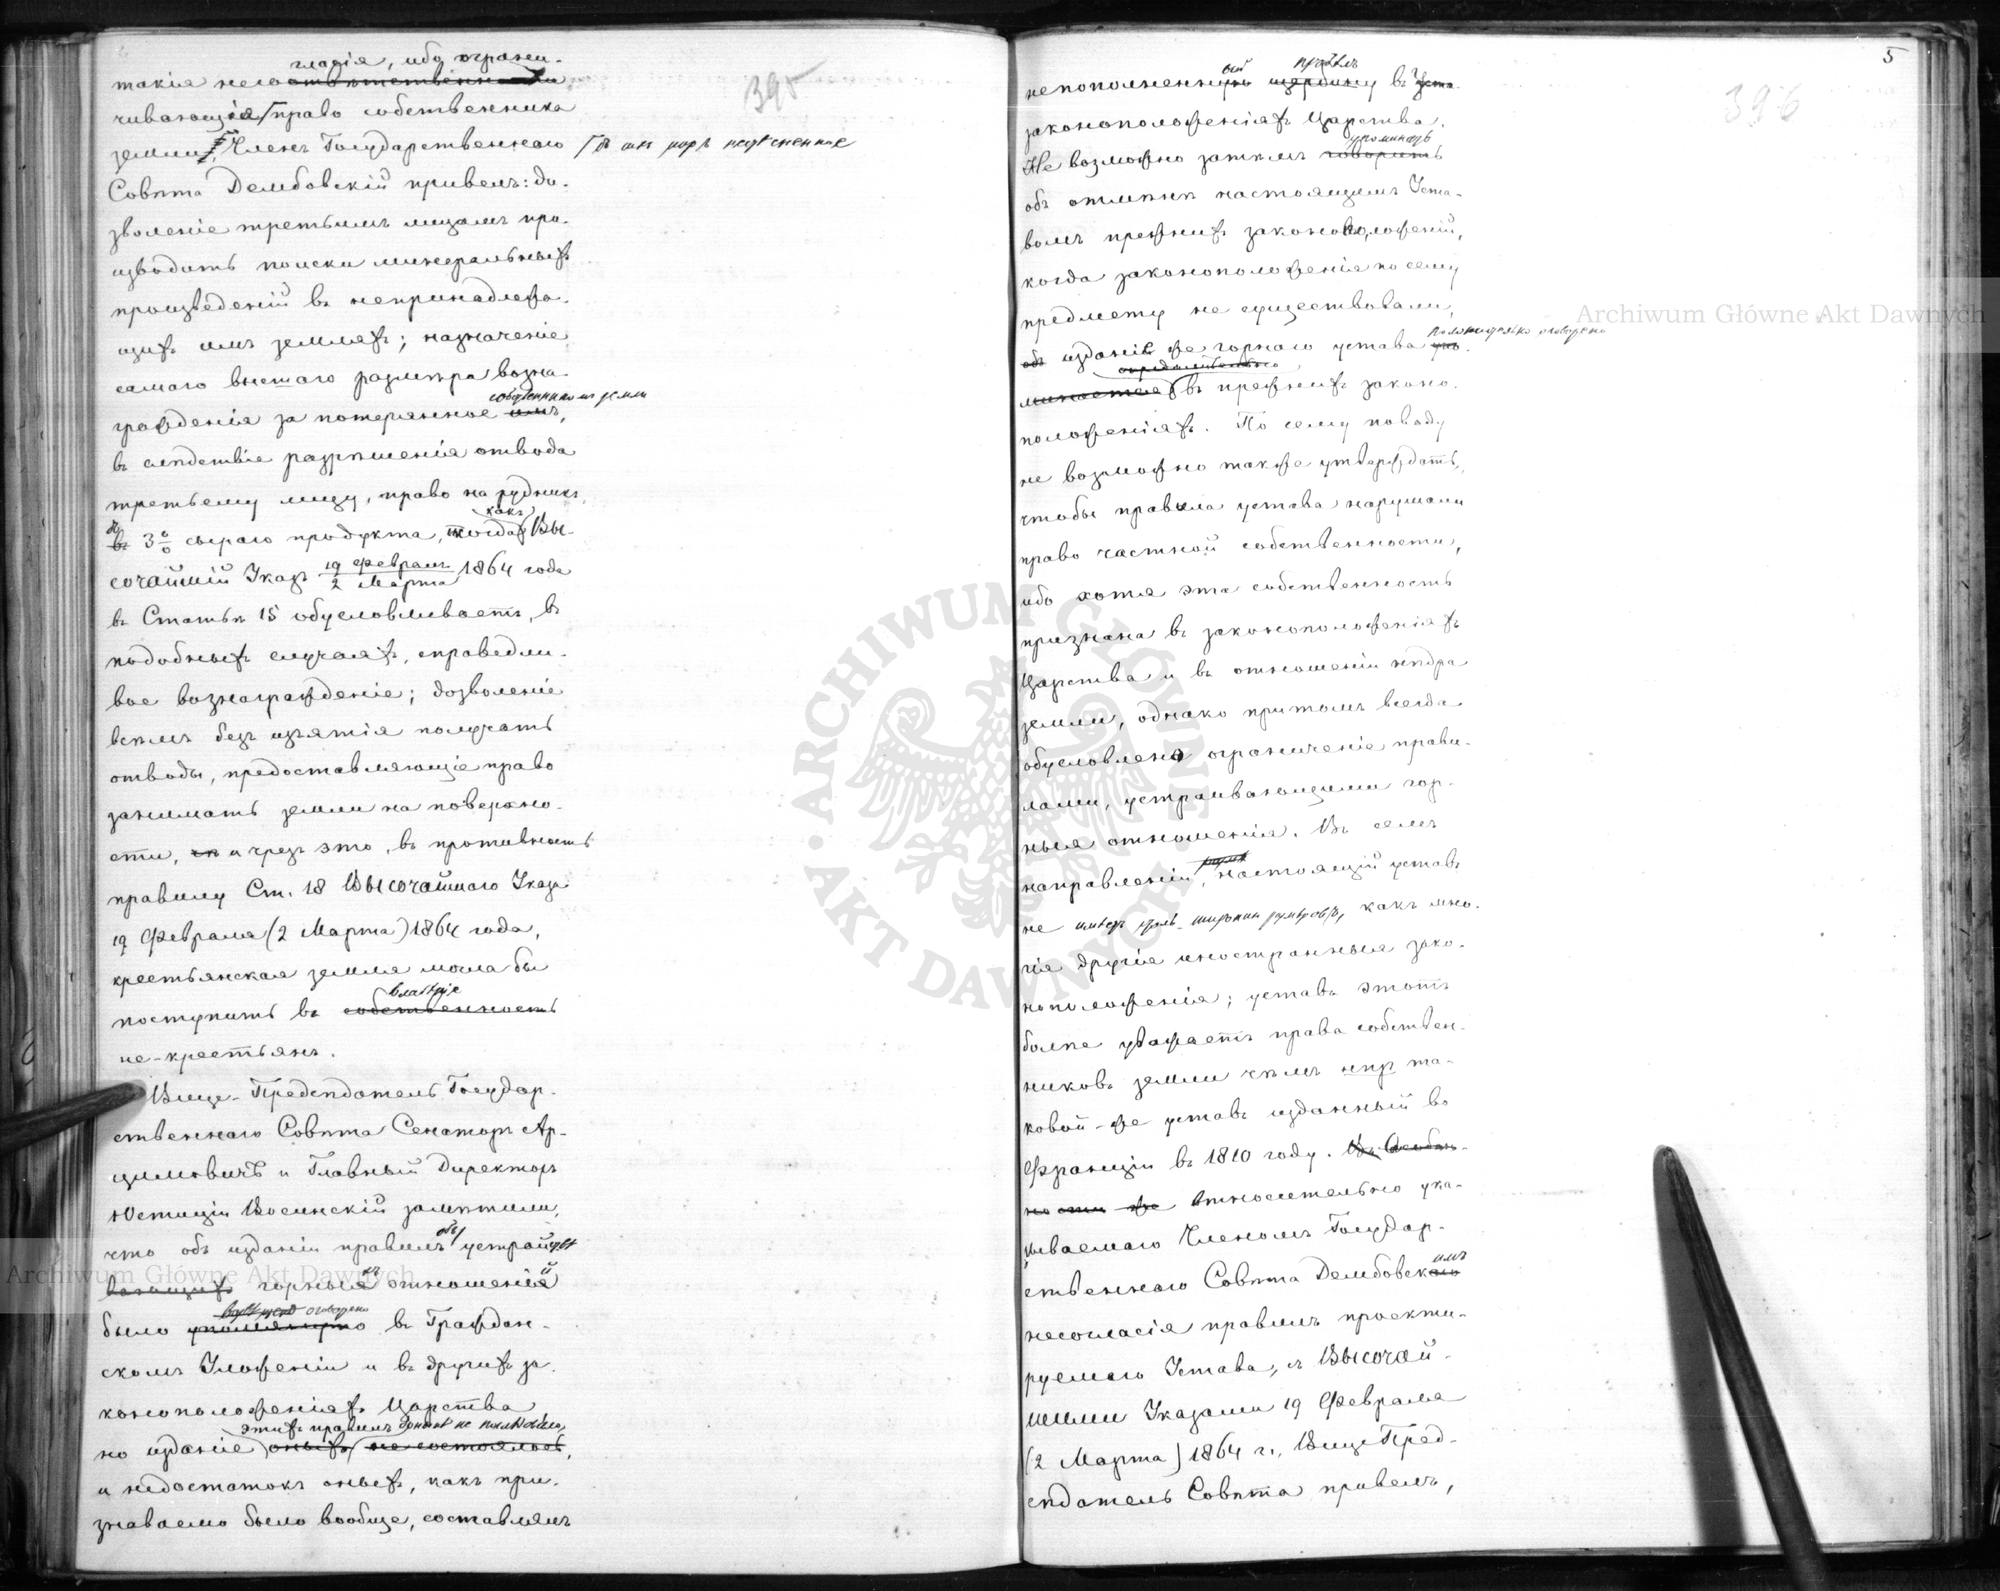 395
гласія, ибо ограни-
такія несоотвѣтственности
чивающія право собственника
земли, Членъ Государственнаго
Совѣта Дембовскій привелъ: до-
зволеніе третьимъ лицамъ про-
изводить поиски минеральныхъ
произведеній въ непринадлежа-
щихъ имъ земляхъ; назначеніе
самаго высшаго размѣра возна-
собственникомъ земли
гражденія за потерянное имъ,
въ слѣдствіе разрѣшенія отвода
третьему лицу, право на рудникъ,
до какъ
въ 3% сыраго продукта, тогда Вы-
сочайшій Указъ 19 Февраля/2 Марта 1864 года
въ Статьѣ 15 обусловливаетъ, въ
подобныхъ случаяхъ, справедли-
вое вознагражденіе; дозволеніе
всѣмъ безъ изъятія получать
отводы, предоставляющіе право
занимать земли на поверхно-
сти, и чрезъ это, въ противность
правилу Ст. 18 Высочайшаго Указа
19 Февраля (2 Марта) 1864 года,
крестьянская земля могла бы
владѣніе
поступить въ собственность
не-крестьянъ.
Вице-Предсѣдатель Государ-
ственнаго Совѣта Сенаторъ Ар-
цимовичъ и Главный Директоръ
Юстиціи Восинскій замѣтили,
что объ изданіи правилъ устрой
вающихъ горныя отношенія
оговорено
было упомянуто въ Граждан-
скомъ Уложеніи и въ другихъ за-
коноположеніяхъ Царства
этихъ правилъ донынѣ не послѣдовало,
но изданіе оныхъ не состоялось,
и недостатокъ оныхъ, какъ при-
знаваемо было вообще, составлялъ
5
396
ый пробѣлъ
непополненную щербину въ
законоположеніяхъ Царства.
упоминать
Не возможно затѣмъ говорить
объ отмѣнѣ настоящимъ Уста-
вомъ прежнихъ законоположеній,
когда законоположенія по сему
предмету не существовали,
положительно оговорено
объ изданіе же горнаго устава
въ прежнихъ законо-
положеніяхъ. По сему поводу
не возможно также утверждать,
чтобы правила устава нарушали
право частной собственности,
ибо хотя эта собственность
признана въ законоположеніяхъ
Царства и въ отношеніи нѣдра
земли, однако притомъ всегда
обусловлено ограниченіе прави-
лами, устраивающими гор-
ныя отношенія. Въ семъ
направленіи, настоящій уставъ
не имѣетъ столь широкихъ размѣровъ, какъ мно-
гія другія иностранныя зако-
ноположенія; уставъ этотъ
болѣе уважаетъ права собствен-
никовъ земли чѣмъ нпр та-
ковой-же уставъ изданный во
Франціи въ 1810 году. Въ Особен-
ности же Относительно ука-
зываемаго Членомъ Государ-
имъ
ственнаго Совѣта Дембовскаго
несогласія правилъ проекти-
руемаго Устава, съ Высочай-
шими Указами 19 Февраля
(2 Марта) 1864 г., Вице Пред-
сѣдатель Совѣта привелъ,
Archiwum Główne Akt Dawnych
Archiwum Główne Akt Dawnych
ARCHIWUM GŁÓWNE AKT DAWNYCH